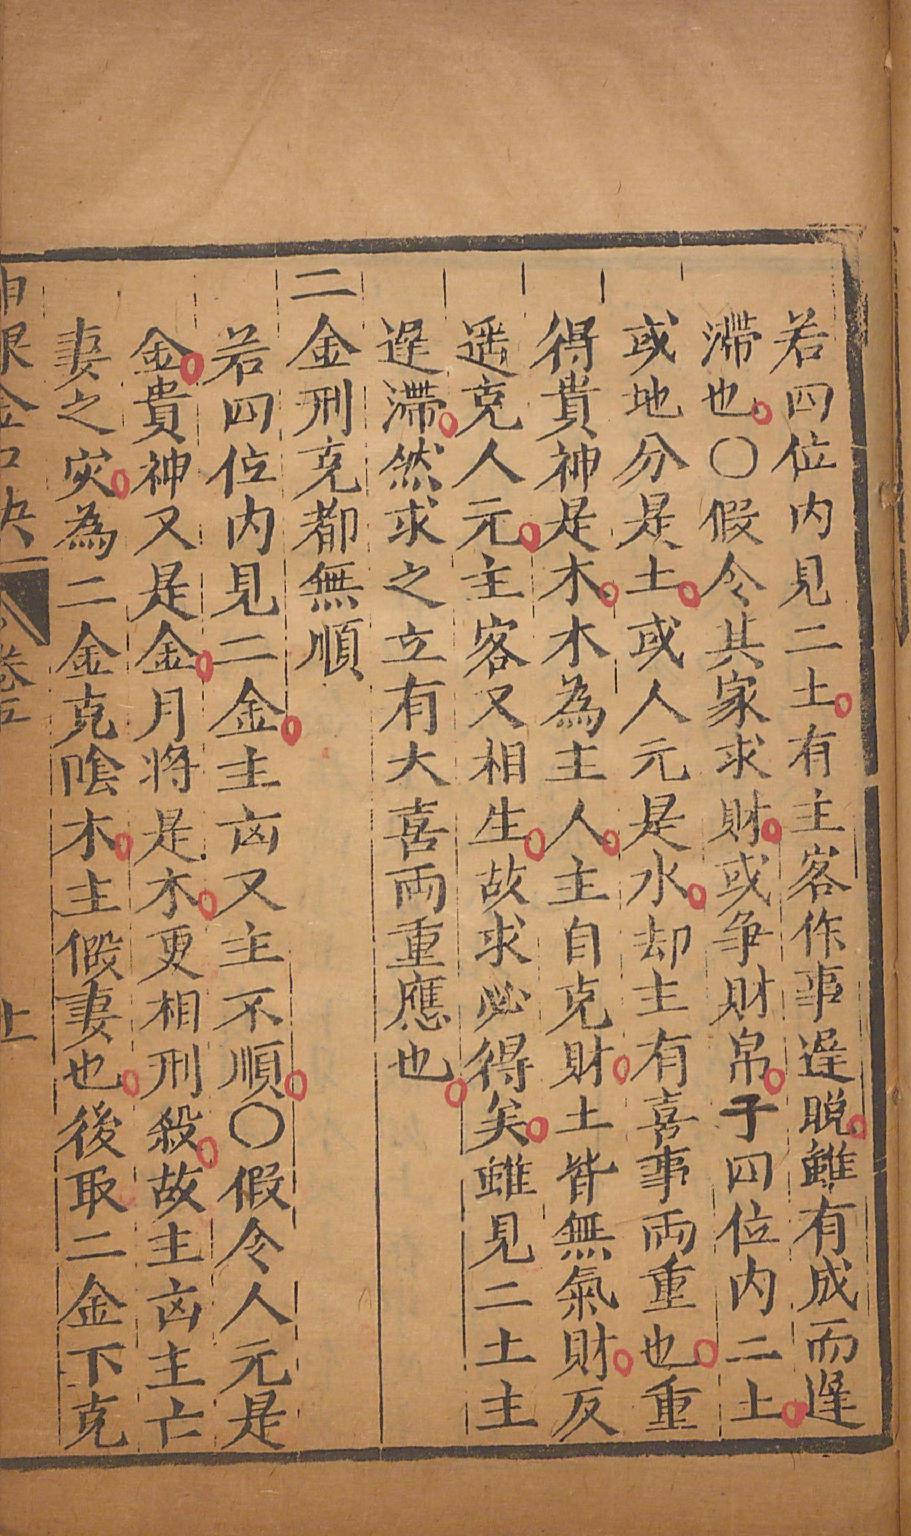 若四位内見二土有主客作事遅晩雖有成而遅
滞也〇假令其家求財或争財帛于四位内二土
或地分是土或人元是水却主有喜事両重也重
得貴神是木木為主人主自克財土皆無氣財反
遥克人元主客又相生故求必得矣雖見二土主
遅滯然求之立有大喜両重應也
二金刑克都無順
若四位内見二金主凶又主不順〇假令人元是
金貴神又是金月将是木更相刑殺故主凶主亡
妻之灾為二金克陰木主假妻也後取二金下克
卷五 上